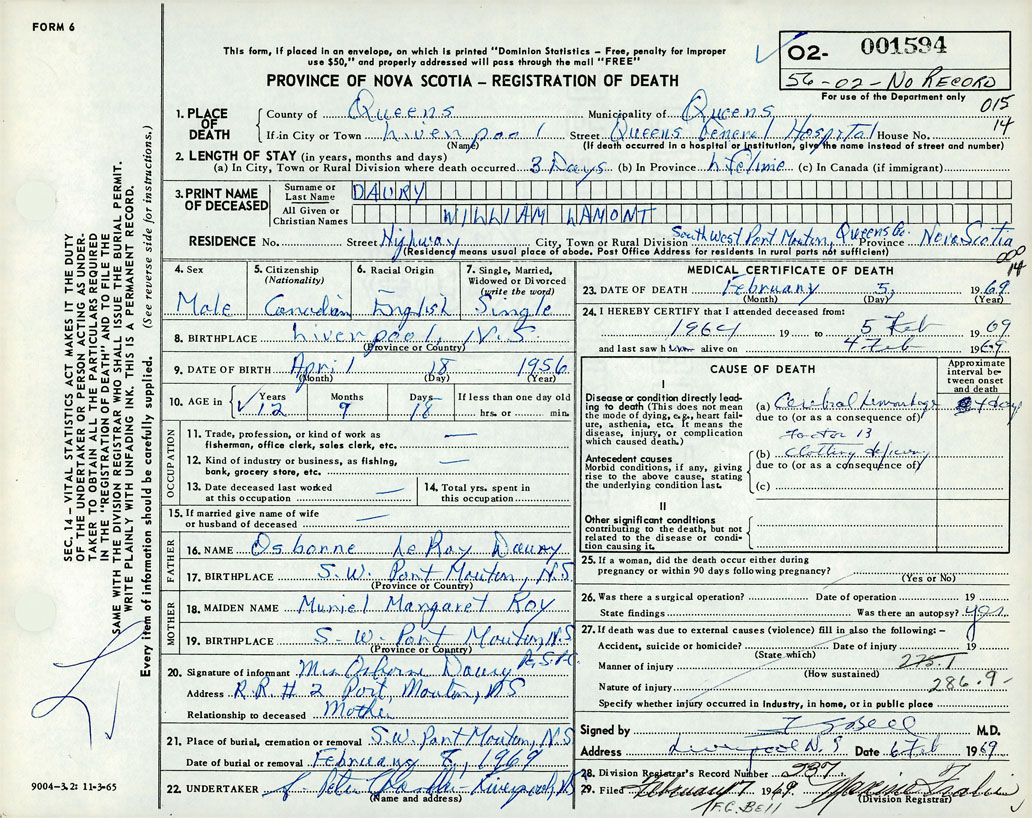 FORM 6
This form, if placed in an envelope, on which is printed "Dominion Statistics – Free, penalty for improper
use $50," and properly addressed will pass through the mail "FREE"
PROVINCE OF NOVA SCOTIA – REGISTRATION OF DEATH
02- 001594
56-02-No RECORD
For use of the Department only
015
14
1. PLACE OF DEATH
County of Queens Municipality of Queens
If in City or Town Liverpool Street Queens General Hospital House No.
(Name) (If death occurred in a hospital or institution, give the name instead of street and number)
2. LENGTH OF STAY (in years, months and days)
(a) In City, Town or Rural Division where death occurred 3 Days (b) In Province Lifetime (c) In Canada (if immigrant)
3. PRINT NAME OF DECEASED
Surname or Last Name DAURY
All Given or Christian Names WILLIAM LAMONT
RESIDENCE No. Street Highway City, Town or Rural Division South West Port Mouton, Queens Co. Province Nova Scotia
(Residence means usual place of abode. Post Office Address for residents in rural parts not sufficient)
000
14
4. Sex Male
5. Citizenship (Nationality) Canadian
6. Racial Origin English
7. Single, Married, Widowed or Divorced (write the word) Single
8. BIRTHPLACE Liverpool, N.S.
(Province or Country)
9. DATE OF BIRTH April 18 1956
(Month) (Day) (Year)
10. AGE in Years 12 Months 9 Days 18 If less than one day old hrs. or min.
OCCUPATION
11. Trade, profession, or kind of work as fisherman, office clerk, sales clerk, etc. —
12. Kind of industry or business, as fishing, bank, grocery store, etc. —
13. Date deceased last worked at this occupation —
14. Total yrs. spent in this occupation
15. If married give name of wife or husband of deceased —
FATHER
16. NAME Osborne LeRoy Daury
17. BIRTHPLACE S.W. Port Mouton, N.S.
(Province or Country)
MOTHER
18. MAIDEN NAME Muriel Margaret Roy
19. BIRTHPLACE S-W. Port Mouton, N.S
(Province or Country)
20. Signature of informant Mrs Osborne Daury
Address R.R. # 2 Port Mouton, NS
Relationship to deceased Mother
21. Place of burial, cremation or removal S.W. Port Mouton, N.S
Date of burial or removal February 8, 1969
22. UNDERTAKER
(Name and address)
MEDICAL CERTIFICATE OF DEATH
23. DATE OF DEATH February 5, 1969
(Month) (Day) (Year)
24. I HEREBY CERTIFY that I attended deceased from:
1964 19 to 5 Feb 1969
and last saw him alive on 4 Feb 1969
CAUSE OF DEATH
Approximate interval between onset and death
I
Disease or condition directly leading to death (This does not mean the mode of dying, e.g., heart failure, asthenia, etc. It means the disease, injury, or complication which caused death.)
(a) Cerebral hemorrhage 4 days
due to (or as a consequence of)
Antecedent causes
Morbid conditions, if any, giving rise to the above cause, stating the underlying condition last.
Factor 13
(b) Clotting deficiency
due to (or as a consequence of)
(c)
II
Other significant conditions contributing to the death, but not related to the disease or condition causing it.
25. If a woman, did the death occur either during
pregnancy or within 90 days following pregnancy?
(Yes or No)
26. Was there a surgical operation? Date of operation 19
State findings Was there an autopsy? yes
27. If death was due to external causes (violence) fill in also the following: –
Accident, suicide or homicide? Date of injury 19
(State which)
Manner of injury
(How sustained)
Nature of injury 286.9
Specify whether injury occurred in industry, in home, or in public place
Signed by F G Bell M.D.
Address Liverpool N.S Date 6 Feb 1969
28. Division Registrar's Record Number 237
29. Filed February 7 1969
(Division Registrar)
F.G. BELL
9004-3.2: 11-3-65
SEC. 14 – VITAL STATISTICS ACT MAKES IT THE DUTY
OF THE UNDERTAKER OR PERSON ACTING AS UNDER-
TAKER TO OBTAIN ALL THE PARTICULARS REQUIRED
IN THE "REGISTRATION OF DEATH" AND TO FILE THE
SAME WITH THE DIVISION REGISTRAR WHO SHALL ISSUE THE BURIAL PERMIT.
WRITE PLAINLY WITH UNFADING INK. THIS IS A PERMANENT RECORD.
Every item of information should be carefully supplied. (See reverse side for instructions.)